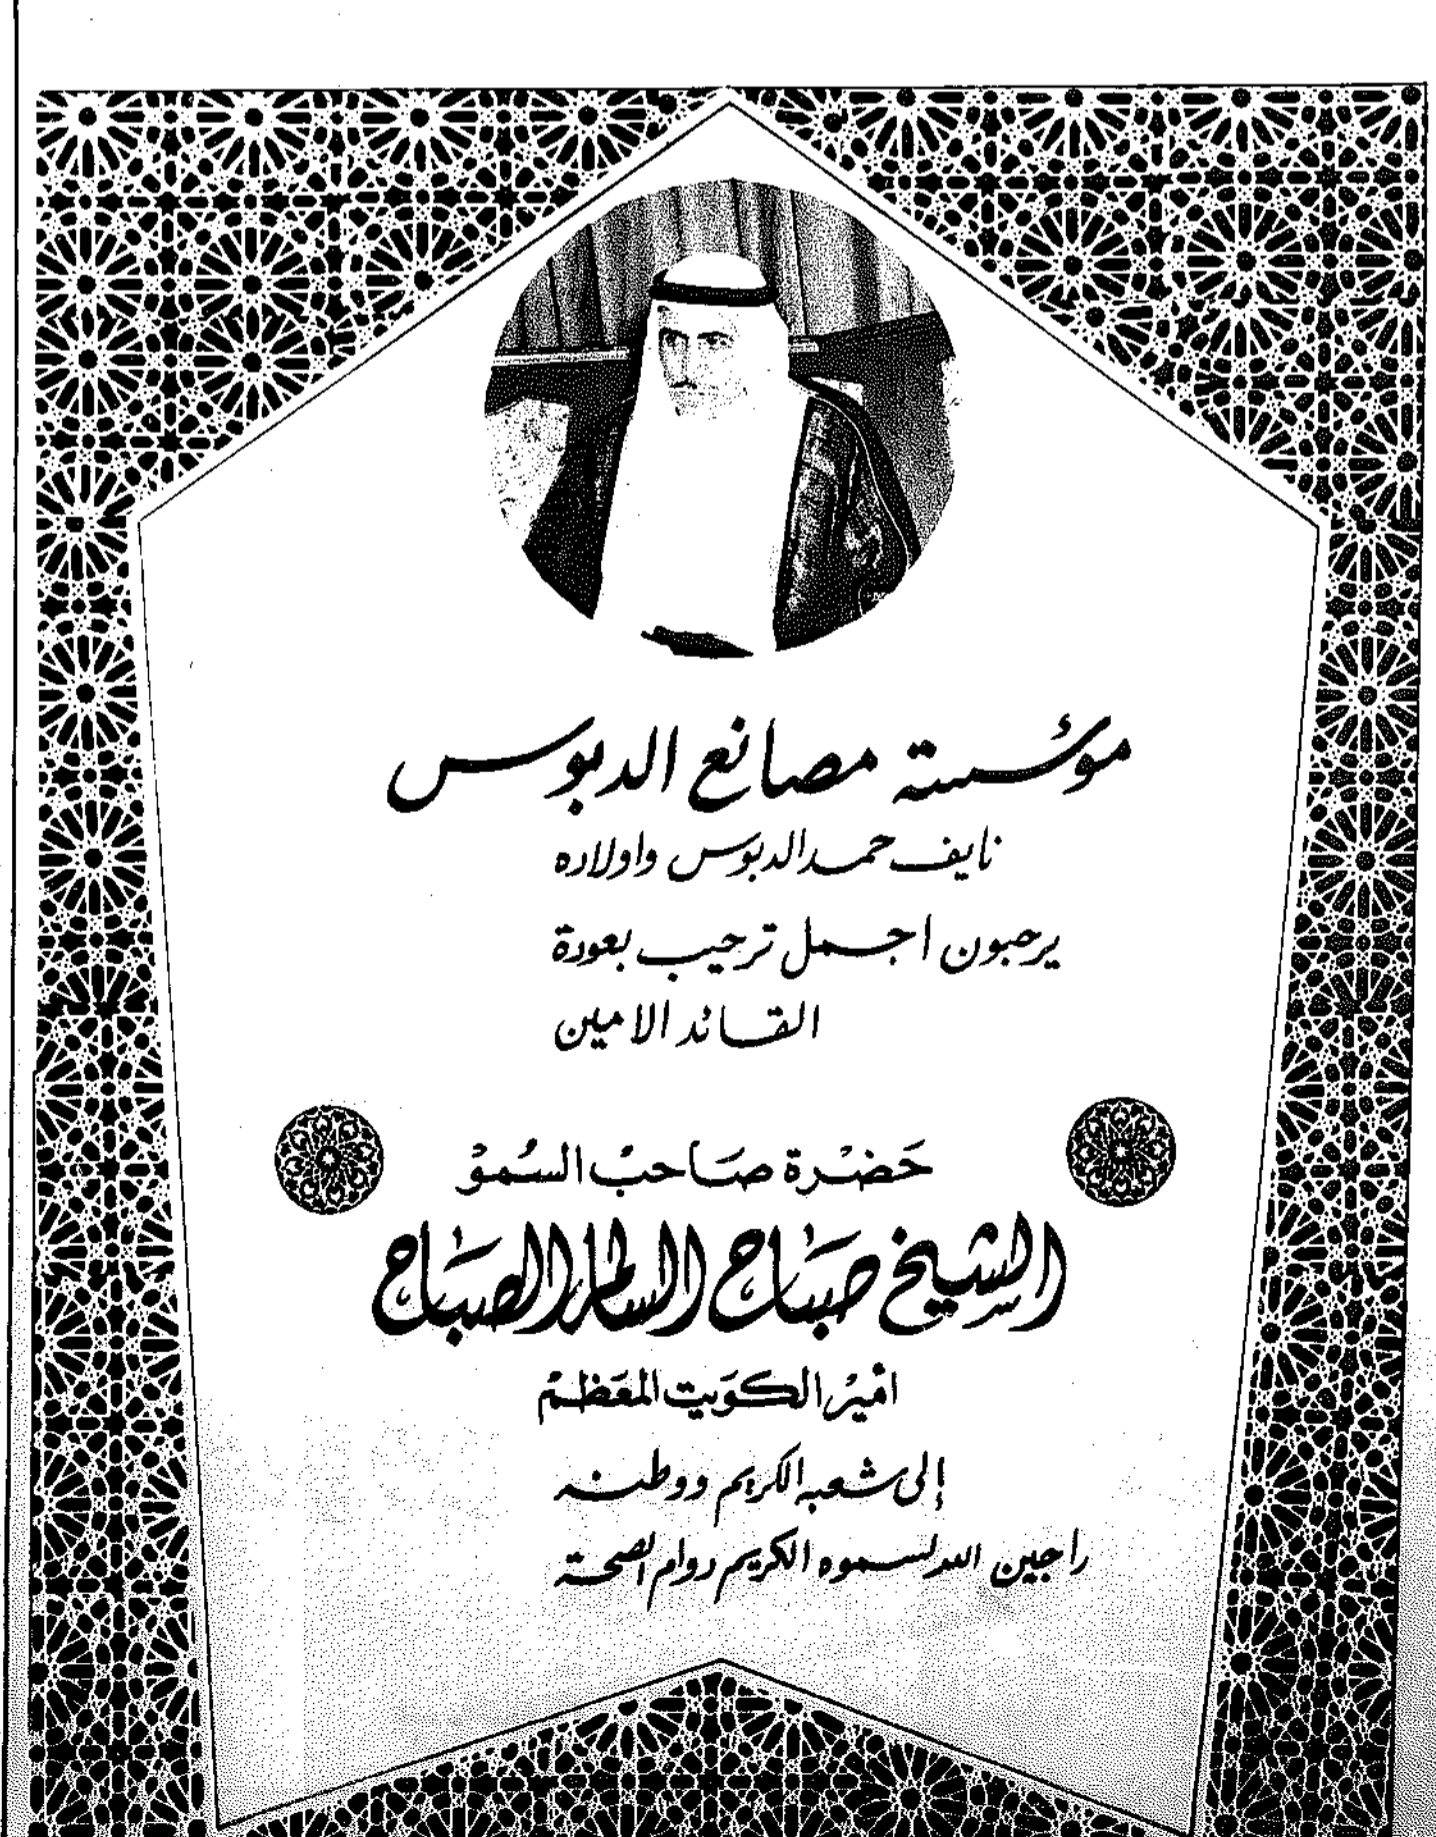 مؤسسة مصانع الدبوس
نايف حمد الدبوس واولاده
يرحبون اجمل ترحيب بعودة
القائد الامين
حَضْرَة صَاحبُ السُموْ
الشيخ صَبَاح السالم الصَبَاح
امْيرْ الكوَيت المعَظمْ
إلى شعبه الكريم ووطنه
راجين الله لسموه الكريم دوام الصحة